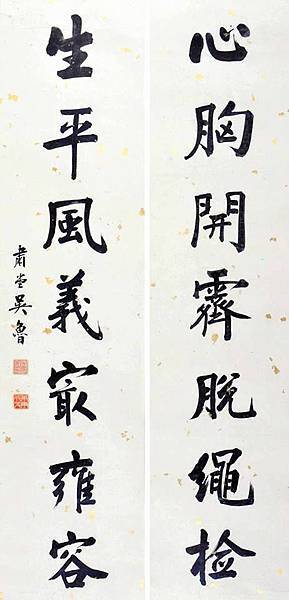 心胸開霽脫繩检
生平風義冣雍容
肅堂吳魯